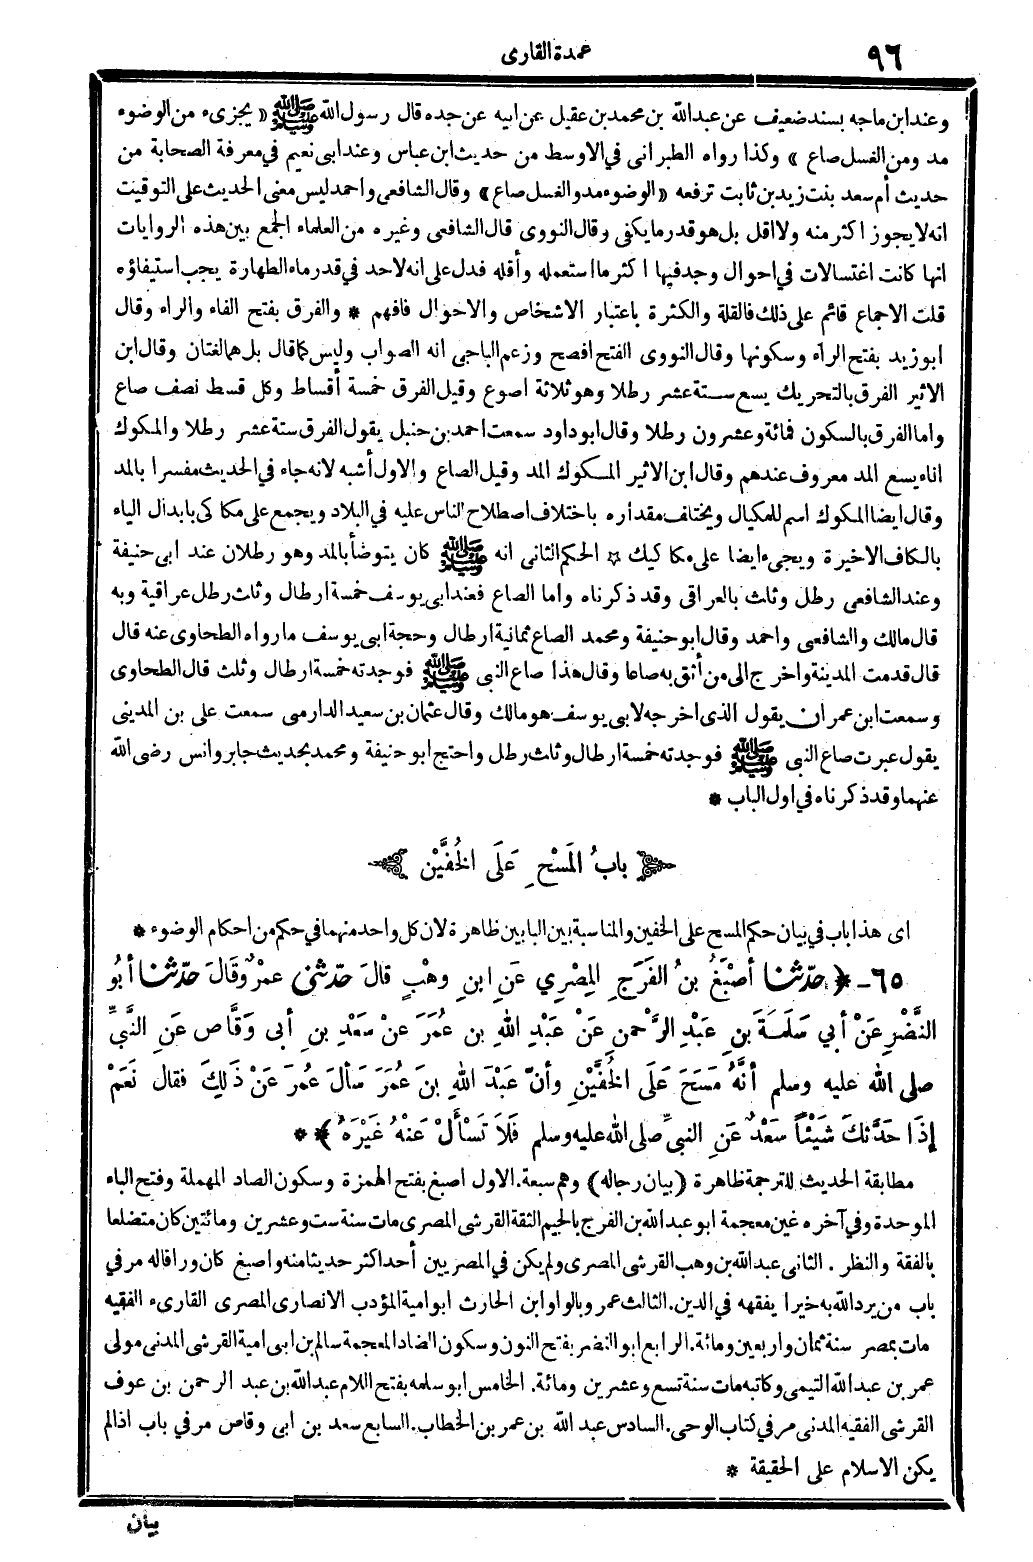 ٩٦
عمدة القارى
وعند ابن ماجه بسند ضعيف عن عبد الله بن محمد بن عقيل عن ابيه عن جده قال رسول الله ﷺ « يجزىء من الوضوء
مد ومن الغسل صاع » وكذا رواه الطبرانى في الاوسط من حديث ابن عباس وعند ابى نعيم في معرفة الصحابة من
حديث أم سعد بنت زيد بن ثابت ترفعه « الوضوء مد والغسل صاع » وقال الشافعى واحمد ليس معنى الحديث على التوقيت
انه لا يجوز اكثر منه ولا اقل بل هو قدر ما يكفى وقال النووى قال الشافعى وغيره من العلماء الجمع بين هذه الروايات
انها كانت اغتسالات في احوال وجد فيها اكثر ما استعمله وأقله فدل على انه لا حد في قدر ماء الطهارة يجب استيفاؤه
قلت الاجماع قائم على ذلك فالقلة والكثرة باعتبار الاشخاص والاحوال فافهم * والفرق بفتح الفاء والراء وقال
ابو زيد بفتح الراء وسكونها وقال النووى الفتح افصح وزعم الباجى انه الصواب وليس كما قال بل هما لغتان وقال ابن
الاثير الفرق بالتحريك يسع ستة عشر رطلا وهو ثلاثة اصوع وقيل الفرق خمسة أقساط وكل قسط نصف صاع
واما الفرق بالسكون فمائة وعشرون رطلا وقال ابو داود سمعت احمد بن حنبل يقول الفرق ستة عشر رطلا والمكوك
اناء يسع المد معروف عندهم وقال ابن الاثير المكوك المد وقيل الصاع والاول أشبه لانه جاء في الحديث مفسرا بالمد
وقال ايضا المكوك اسم للمكيال ويختلف مقداره باختلاف اصطلاح الناس عليه في البلاد ويجمع على مكاكى بابدال الياء
بالكاف الاخيرة ويجىء ايضا على مكاكيك ☆ الحكم الثانى انه ﷺ كان يتوضأ بالمد وهو رطلان عند ابى حنيفة
وعند الشافعى رطل وثلث بالعراقى وقد ذكرناه واما الصاع فعند ابى يوسف خمسة ارطال وثلث رطل عراقية وبه
قال مالك والشافعى واحمد وقال ابو حنيفة ومحمد الصاع ثمانية ارطال وحجة ابى يوسف ما رواه الطحاوى عنه قال
قال قدمت المدينة واخرج الى من أثق به صاعا وقال هذا صاع النبى ﷺ فوجدته خمسة ارطال وثلث قال الطحاوى
وسمعت ابن عمران يقول الذى اخرجه لابى يوسف هو مالك وقال عثمان بن سعيد الدارمى سمعت على بن المدينى
يقول عبرت صاع النبى ﷺ فوجدته خمسة ارطال وثلث رطل واحتج ابو حنيفة ومحمد بحديث جابر وانس رضى الله
عنهما وقد ذكرناه في اول الباب *
بابُ المَسْحِ عَلَى الخُفَّيْنِ
اى هذا باب في بيان حكم المسح على الخفين والمناسبة بين البابين ظاهرة لان كل واحد منهما في حكم من احكام الوضوء *
٦٥ـ ﴿ حدّثنا أصْبَغُ بنُ الفَرَجِ المِصْرِي عَنِ ابنِ وهْبٍ قالَ حدّثني عمْرٌو قَالَ حدّثنا أبُو
النَّضْرِ عَنْ أبي سَلَمَةَ بنِ عَبْدِ الرَّحْمنِ عَنْ عَبْدِ اللهِ بنِ عُمَرَ عَنْ سَعْدِ بنِ أبى وَقَّاص عَنِ النَّبِيِّ
صلى الله عليه وسلم أنَّهُ مَسَحَ عَلَى الخُفَّيْنِ وأنّ عَبْدَ اللهِ بنَ عُمَرَ سَألَ عُمَرَ عَنْ ذَلِكَ فقال نَعَمْ
إذَا حَدَّثَكَ شَيْئاً سَعْدٌ عَنِ النبيِّ صلى الله عليه وسلم فَلاَ تَسْأَلْ عَنْهُ غَيْرَهُ ﴾ * *
مطابقة الحديث للترجمة ظاهرة (بيان رجاله) وهم سبعة. الاول اصبغ بفتح الهمزة وسكون الصاد المهملة وفتح الباء
الموحدة وفي آخره غين معجمة ابو عبد الله بن الفرج بالجيم الثقة القرشى المصرى مات سنة ست وعشرين ومائتين كان متضلعا
بالفقة والنظر . الثانى عبد الله بن وهب القرشى المصرى ولم يكن في المصريين أحد اكثر حديثا منه واصبغ كان وراقا له مر في
باب من يرد الله به خيرا يفقهه في الدين. الثالث عمرو بالواو ابن الحارث ابو امية المؤدب الانصارى المصرى القارىء الفقيه
مات بمصر سنة ثمان واربعين ومائة. الرابع ابو النضر بفتح النون وسكون الضاد المعجمة سالم بن ابى امية القرشى المدنى مولى
عمر بن عبد الله التيمى وكاتبه مات سنة تسع وعشرين ومائة. الخامس ابو سلمه بفتح اللام عبد الله بن عبد الرحمن بن عوف
القرشى الفقيه المدنى مر في كتاب الوحى. السادس عبد الله بن عمر بن الخطاب. السابع سعد بن ابى وقاص مر في باب اذا لم
يكن الاسلام على الحقيقة *
بيان